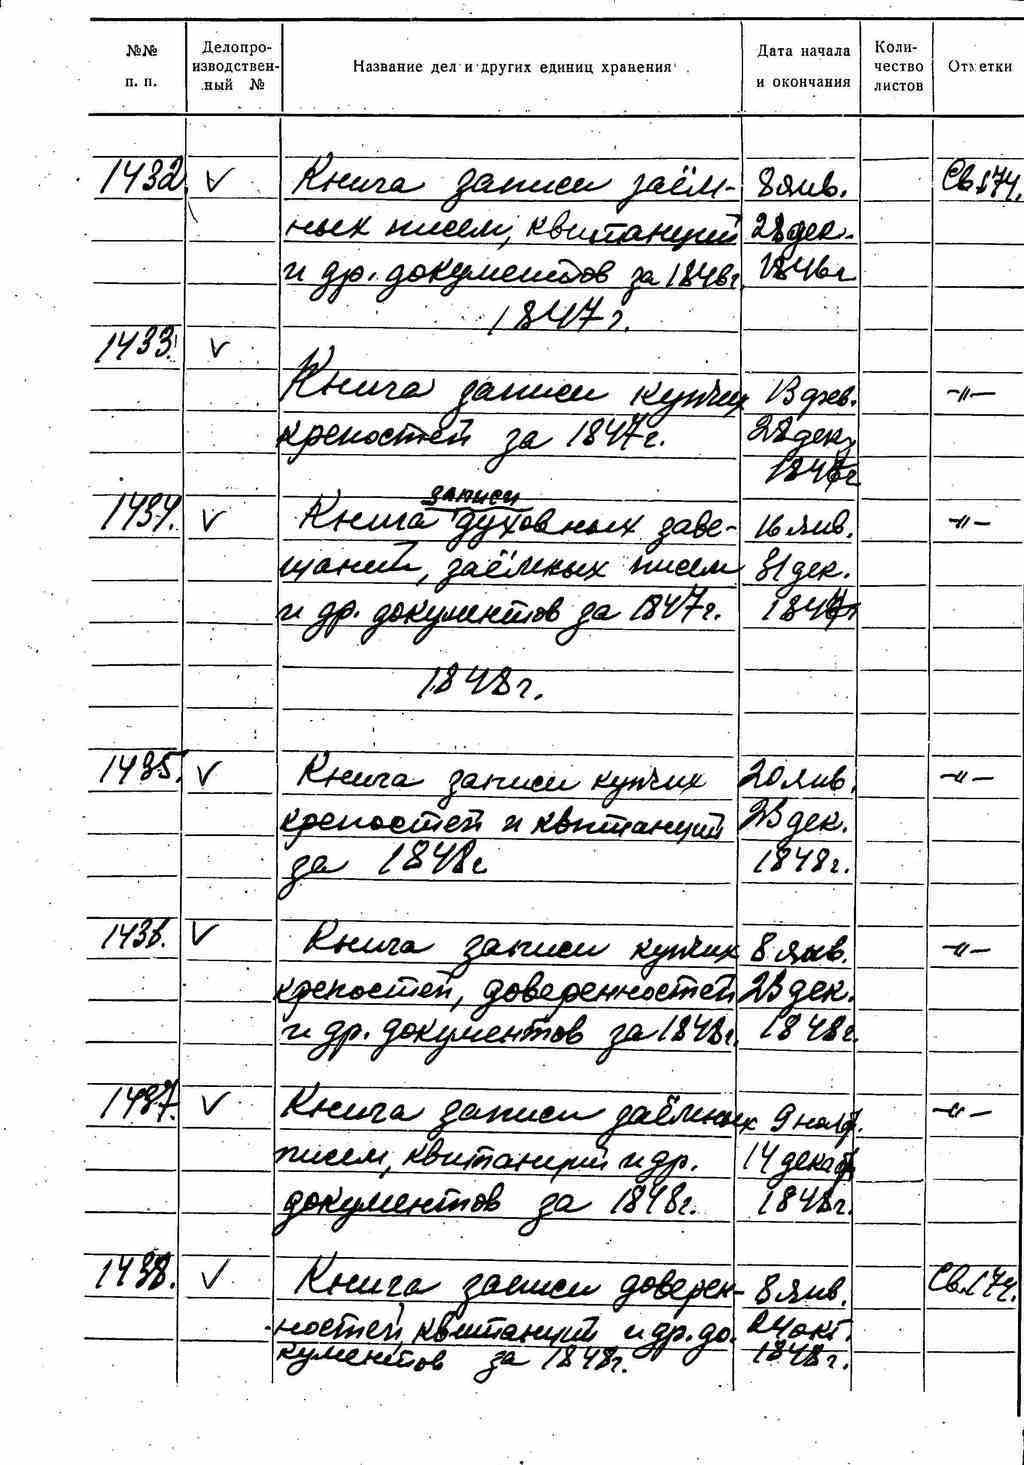 №№ п. п. Делопроизводственный № Название дел и других единиц хранения Дата начала и окончания Количество листов Отметки
1432. V Книга записи заём- 8 янв. Св.174.
ных писем, квитанций 28 дек.
и др. документов за 1846г. 1846г
1847г.
1433. V
Книга записи купчих 13 фев. -"-
крепостей за 1847г. 28 дек.
1847г
записи
1434. V Книга духовных заве- 16 янв. -"-
щаний, заёмных писем 31 дек.
и др. документов за 1847г. 1847г
1848г.
1435. V Книга записи купчих 20 янв. -"-
крепостей и квитанций 23 дек.
за 1848г 1848г.
1436. V Книга записи купчих 8 янв. -"-
крепостей, доверенностей 23 дек.
и др. документов за 1848г. 1848г.
1437. V Книга записи заёмных 9 -"-
писем, квитанций и др. 14 декаб
документов за 1848г. 1848г.
1438. V Книга записи доверен- 8 янв. Св.174.
ностей, квитанций и др. до- 24 окт.
кументов за 1848г. 1848г.